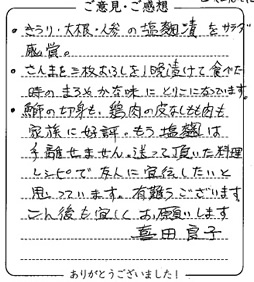 ご意見・ご感想
・きうり・大根・人参の塩麹漬をサラダ
感覚。
・さんまを三枚おろしを1晩漬けて食べた
時のまろやかな味にとりこになっています。
・鰤の切身も、鶏肉の皮なしもも肉も
家族に好評。もう塩麹は
手離せません。送って頂いた料理
レシピで友人に宣伝したいと
思っています。有難うございます
こん後も宜しくお願いします
ありがとうございました!